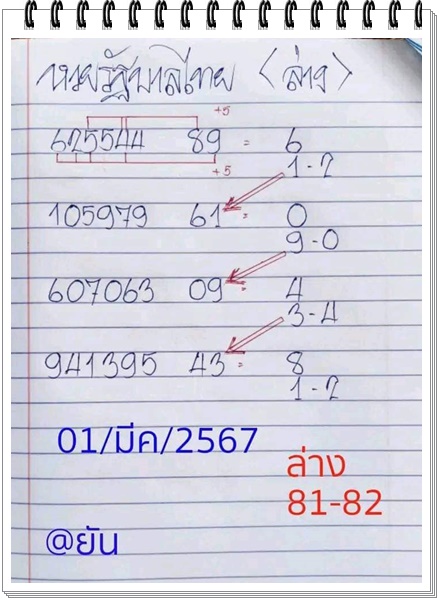 หวยรัฐบาลไทย (ล่าง)
+5
625544 89 = 6
1-2
+5
105979 61 = 0
9-0
607063 09 = 4
3-4
941395 43 = 8
1-2
01/มีค/2567
ล่าง
81-82
@ยัน